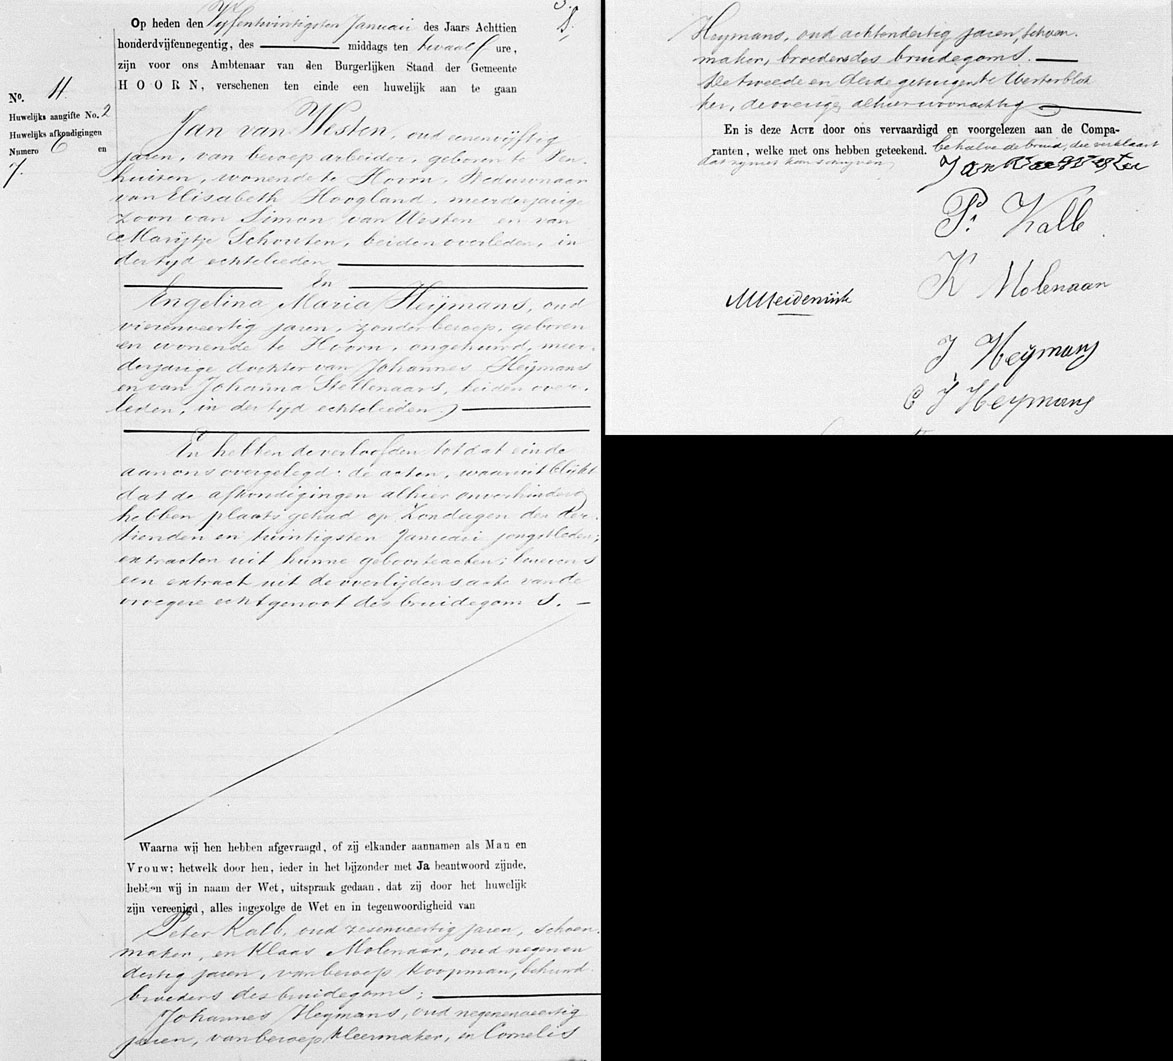 Op heden den Vijfentwintigsten Januari des Jaars Achttien
honderdvijfennegentig, des middags ten twaalf ure,
zijn voor ons Ambtenaar van den Burgerlijken Stand der Gemeente
HOORN, verschenen ten einde een huwelijk aan te gaan
No. 11
Huwelijks aangifte No. 2
Huwelijks afkondigingen
Numero 6 en
7.
Jan van Westen, oud eenenvijftig
jaren, van beroep arbeider, geboren te Ven-
huizen, wonende te Hoorn, Weduwnaar
van Elisabeth Hoogland, meerderjarige
zoon van Simon van Westen en van
Marijtje Schouten, beiden overleden, in
der tijd echtelieden
En
Engelina Maria Heijmans, oud
vierenveertig jaren, zonder beroep, geboren
en wonende te Hoorn, ongehuwd, meer-
derjarige dochter van Johannes Heijmans
en van Johanna Stellenaars, beiden over-
leden, in der tijd echtelieden
En hebben de verloofden tot dat einde
aan ons overgelegd: de acten, waaruit blijkt
dat de afkondigingen alhier onverhinderd
hebben plaats gehad op Zondagen den der-
tienden en twintigsten Januari jongstleden;
extracten uit hunne geboorteacten; benevens
een extract uit de overlijdensacte van de
vroegere echtgenoot des bruidegoms.
Waarna wij hen hebben afgevraagd, of zij elkander aannamen als Man en
Vrouw; hetwelk door hen, ieder in het bijzonder met Ja beantwoord zijnde,
hebben wij in naam der Wet, uitspraak gedaan, dat zij door het huwelijk
zijn vereenigd, alles ingevolge de Wet en in tegenwoordigheid van
Peter Kalb, oud zesenveertig jaren, schoen-
maker, en Klaas Molenaar, oud negenen
dertig jaren, van beroep koopman, behuwd
broeders des bruidegoms;
Johannes Heymans, oud negenenveertig
jaren, van beroep kleermaker, en Cornelis
Heymans, oud achtendertig jaren, schoen-
maker, broeders des bruidegoms.
De tweede en derde getuigen te Westerblok-
ker, de overige alhier woonachtig
En is deze ACTE door ons vervaardigd en voorgelezen aan de Compa-
ranten, welke met ons hebben geteekend. behalve de bruid, die verklaart
dat zij niet kan schrijven
Jan van Westen
P. Kalb
K Molenaar
J Heijmans
C J Heymans